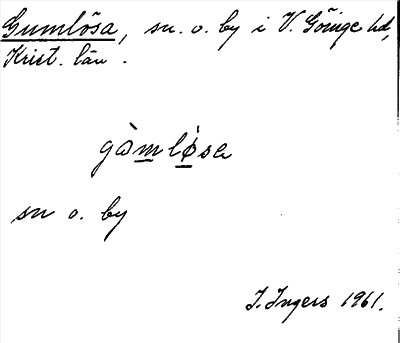 Gumlösa, sn. o. by i V. Göinge hd,
Krist. län.
gòmlø̀sa
sn o. by
I. Ingers 1961.